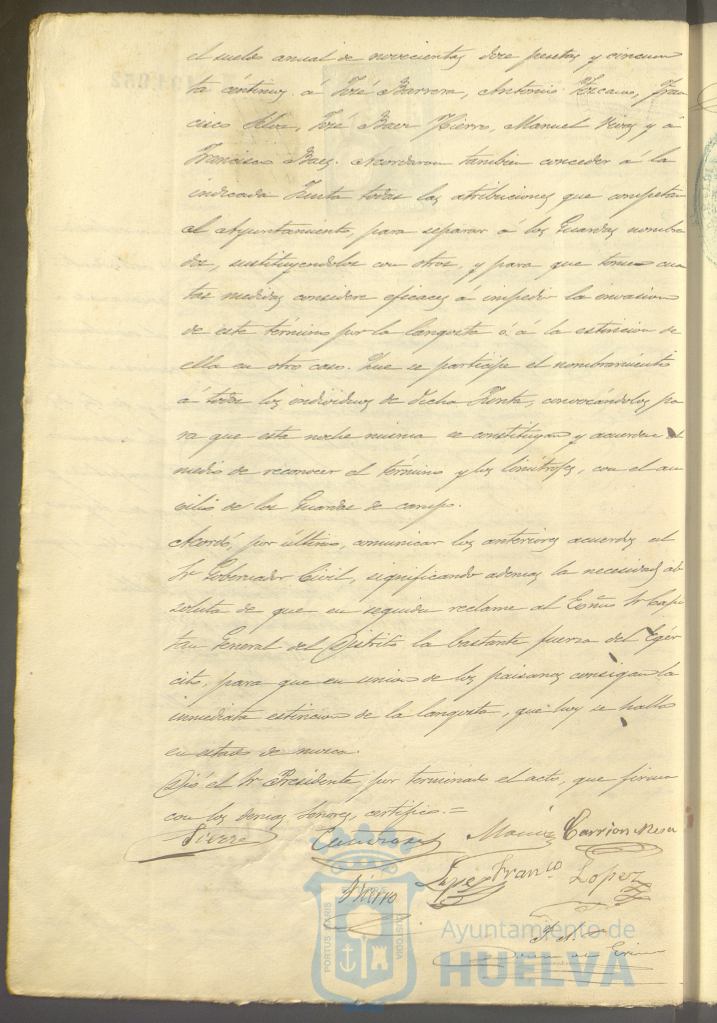 el sueldo anual de novecientas doce pesetas y cincuen
ta céntimos á José Barrera, Antonio Vizcaino, Fran
cisco José Baez Hierro, Manuel Vives y á
Francisco Baez. Acordaron tambien conceder á la
indicada Junta todas las atribuciones que competen
al Ayuntamiento, para separar á los Guardas nombra
dos, sustituyendolos con otros, y para que tome cuan
tas medidas considere eficaces á impedir la invasion
de este término por la langosta ó á la estincion de
ella en otro caso. Que se participe el nombramiento
á todos los individuos de dicha Junta, convocándolos pa
ra que esta noche misma se constituyan y acuerden el
medio de reconocer el término y los limitrofes, con el au
cilio de los Guardas de campo.
Acordó, por último, comunicar los anteriores acuerdos al
Sr. Gobernador Civil, significando ademas la necesidad ab
soluta de que en seguida reclame al Escmo Sr Capi
tan General del Distrito la bastante fuerza del Egér
cito, para que en union de los paisanos consigan la
inmediata estincion de la langosta, que hoy se halla
en estado de mosca.
Dió el Sr Presidente, por terminado el acto, que firma
con los demas Señores, certifico.=
Hierro Carrion
Hierro José Franco Lopez
PORTUS MARIS CUSTODIA
Ayuntamiento de
HUELVA